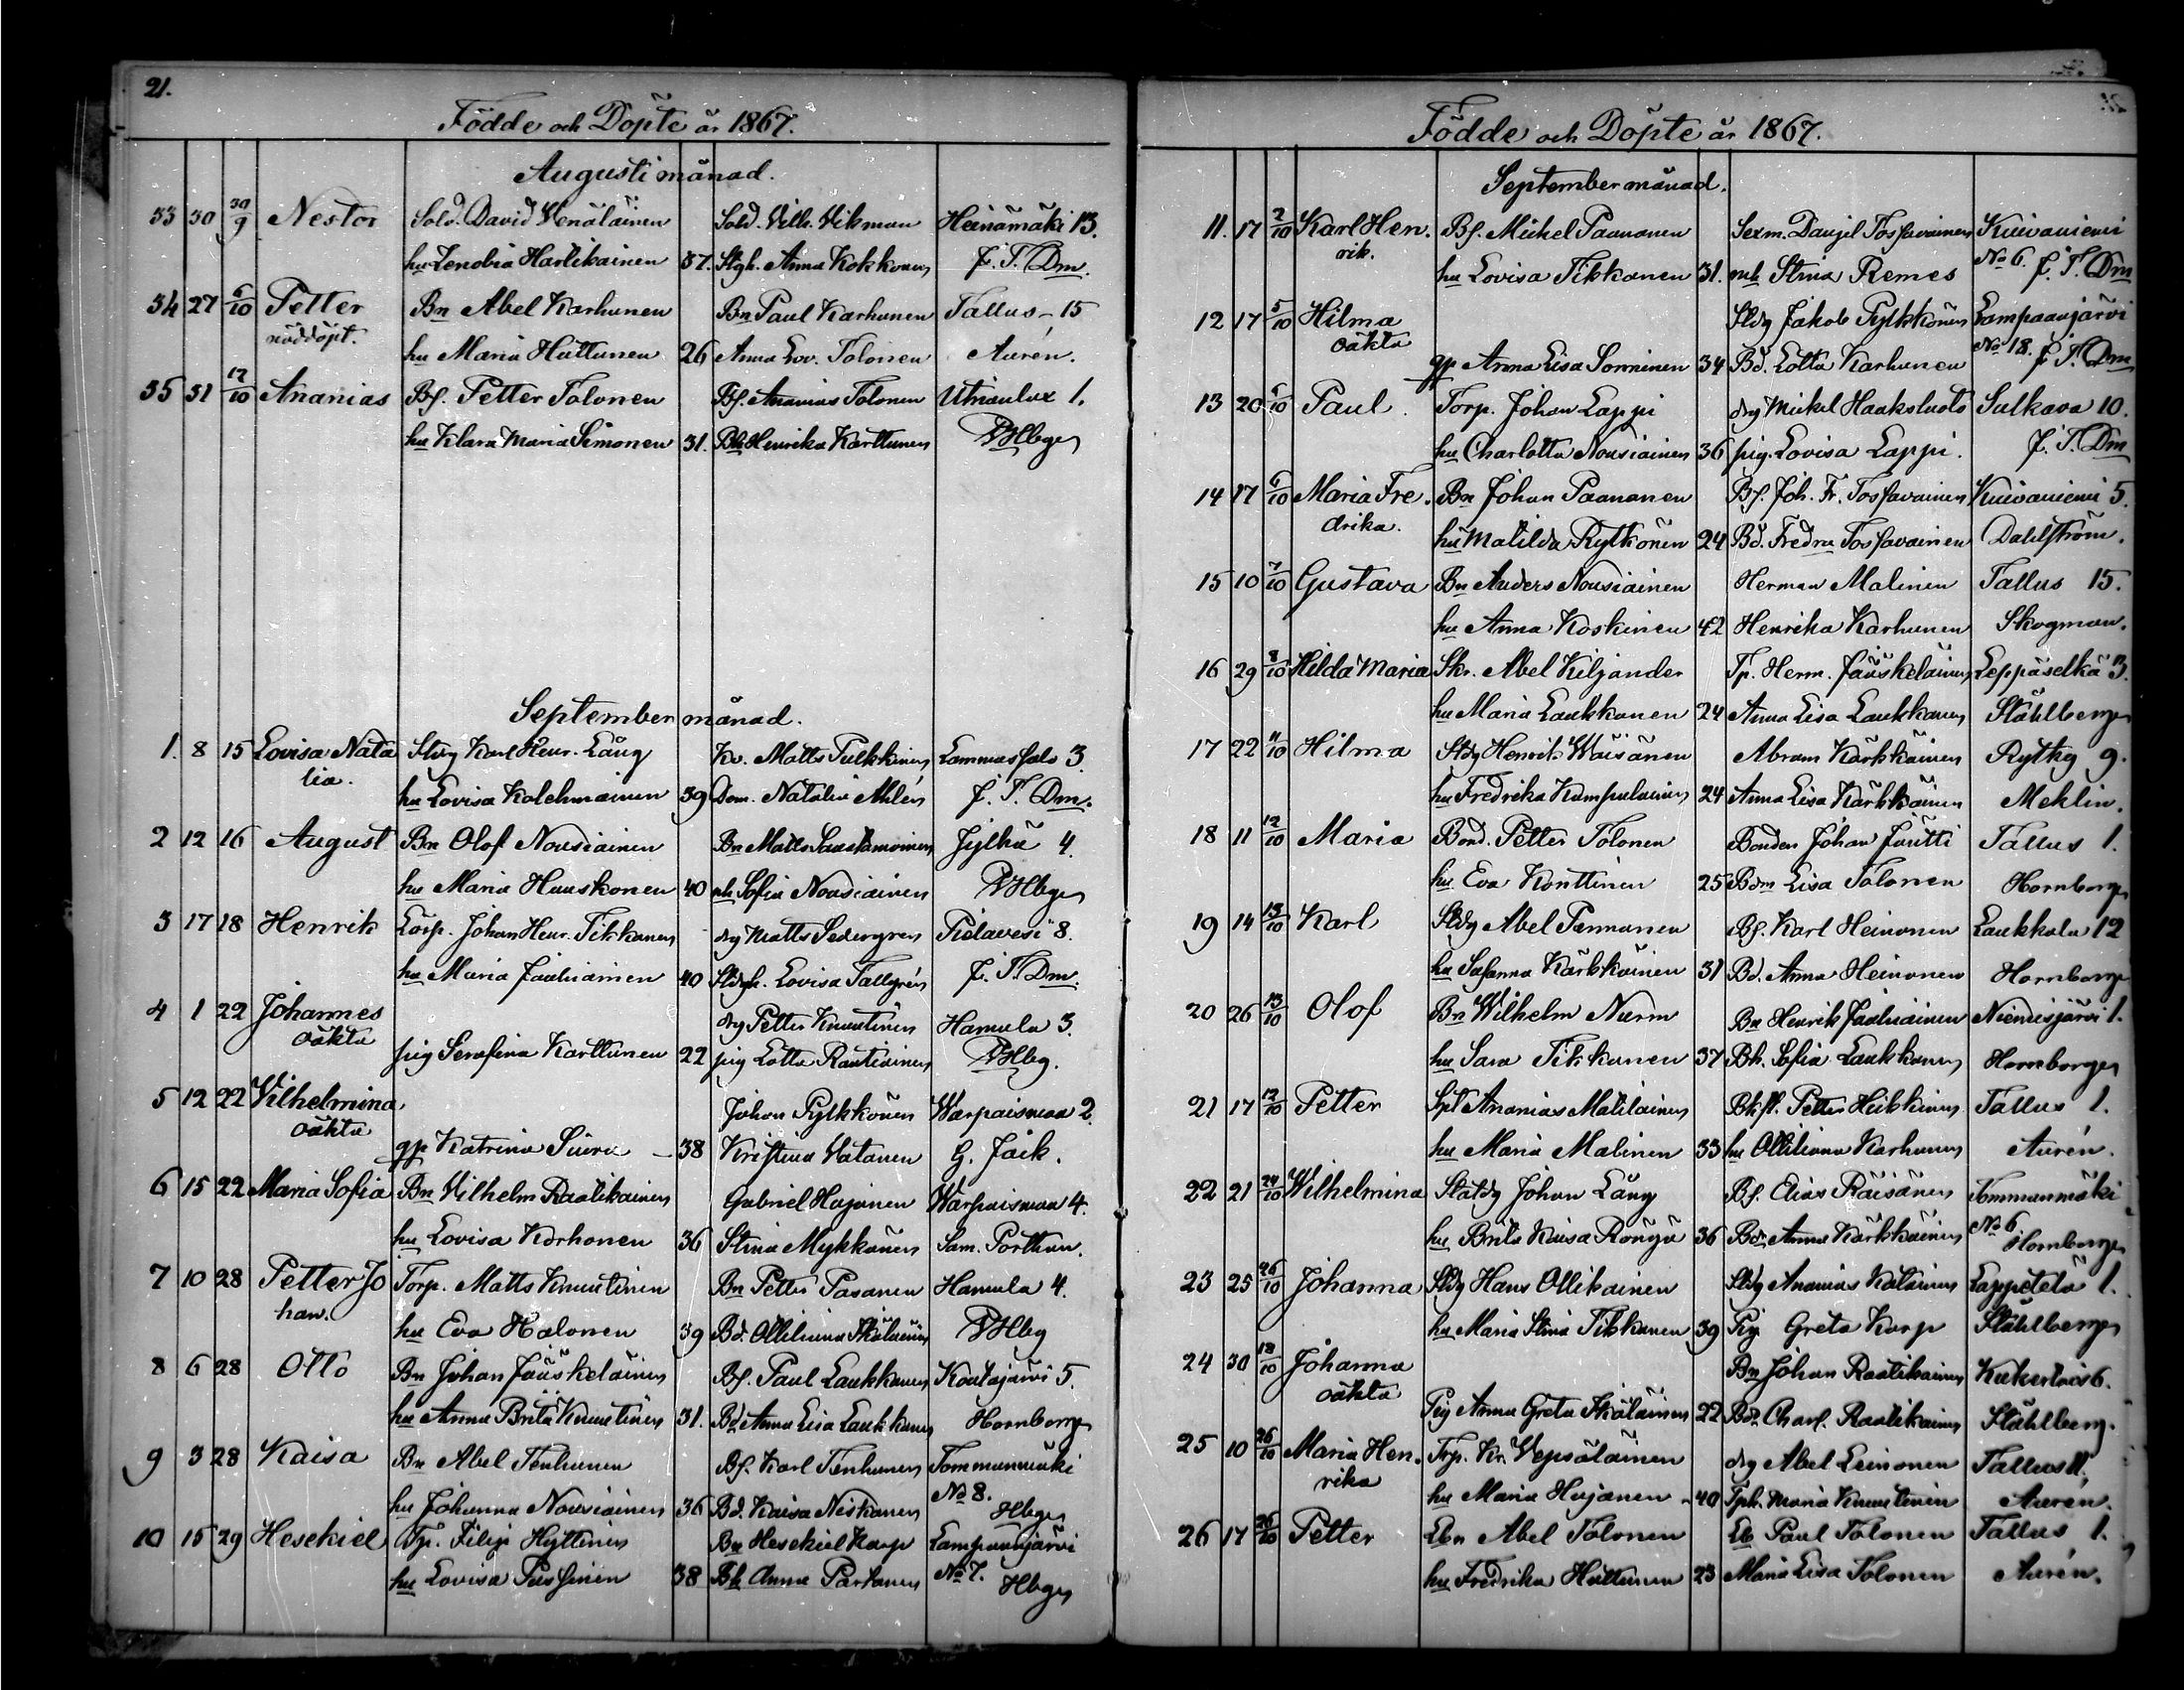 21.
Födde och Döpte år 1867.
Augusti månad.
33 30 30/9 Nestor Sold. David Venäläinen Sold. Vilh. Vikman Heinämäki 13.
hu Zenobia Hartikainen 37. Stgh. Anna Kokkonen J. T. Dm.
34 27 6/10 Petter Bn Abel Karhunen Bn Paul Karhunen Tallus - 15
nöddöpt. hu Maria Huttunen 26 Anna Lov. Tolonen Aurén.
35 31 12/10 Ananias Bf. Petter Tolonen Bf. Ananias Tolonen 1.
hu Klara Maria Simonen 31. Bh Henrika Karttunen
September månad.
1. 8 15 Lovisa Nata Karl Henr. Lång Matts Pulkkinen Lammassalo 3.
lia. hu Lovisa Kolehmainen 39 Dem. Natalia Ahlén J. T. Dm.
2 12 16 August Bn Olof Nousiainen Bn Matts Saastamoinen Jylhä 4.
hu Maria Huuskonen 40 Sofia Nousiainen
3 17 18 Henrik Torp. Johan Henr. Tikkanen drg Matts Sedergren Pielavesi 8.
hu Maria Jauhiainen 40 Stdgh. Lovisa Tallgrén J. T. Dm.
4 1 22 Johannes drg Petter Knuutinen Hamula 3.
oäkta pig Serafina Karttunen 22 pig Lotta Rautiainen
5 12 22 Vilhelmina Johan Pylkkönen Warpaismaa 2.
oäkta gp Katrina Siura - 38 Kristina Vatanen G. Jack.
6 15 22 Maria Sofia Bn Vilhelm Raatikainen Gabriel Hujanen Warpaismaa 4.
hu Lovisa Korhonen 36 Stina Mykkänen Sam. Porthan.
7 10 28 Petter Jo Torp. Matts Knuutinen Bn Petter Pasanen Hamula 4.
han. hu Eva Halonen 39 Bd. Ottiliana
8 6 28 Otto Bn Johan Jääskeläinen Bf. Paul Laukkanen Koutajärvi 5.
hu Anna Brita Knuutinen 31. Bd Anna Lisa Laukkanen Hornborg
9 3 28 Kaisa Bn Abel Tenhunen Bf. Karl Tenhunen Tommanmäki
hu Johanna Nousiainen 36 Bd. Kaisa Niskanen No 8. Hbg
10 15 29 Hesekiel Tp. Filip Hyttinen Bn Hesekiel Karp Lampaanjärvi
hu Lovisa Pussinen 38 Bh Anna Partanen No 7. Hbg
Födde och Döpte år 1867.
September månad.
11. 17 2/10 Karl Hen- Bf. Mickel Paananen Sexm. Daniel Tossavainen Kuivaniemi
rik. hu Lovisa Tikkanen 31. Stina Remes No 6. J. T. Dm
12 17 5/10 Hilma Stdg Jakob Pylkkönen Lampaanjärvi
oäkta gp Anna Lisa Sonninen 34 Bd. Lotta Karhunen No 18. J. T. Dm
13 20 6/10 Paul. Torp. Johan Lappi drg Mickel Haaksluoto Sulkava 10.
hu Charlotta Nousiainen 36 pig. Lovisa Lappi. J. T. Dm
14 17 6/10 Maria Fre- Bn Johan Paananen Bf. Joh. Fr. Tossavainen Kuivaniemi 5.
drika. hu Matilda Rytkönen 24 Bd. Fredra Tossavainen Dahlström.
15 10 7/10 Gustava Bn Anders Nousiainen Herman Malinen Tallus 15.
hu Anna Koskinen 42 Henrika Karhunen Skogman.
16 29 8/10 Hilda Maria Skr. Abel Kiljander Tp. Herm. Jääskeläinen Leppäselkä 3.
hu Maria Laukkanen 24 Anna Lisa Laukkanen Ståhlberg
17 22 11/10 Hilma Stdg Henrik Wäisänen Abram Kärkkäinen Rytky 9.
hu Fredrika Kumpulainen 24 Anna Lisa Kärkkäinen Meklin.
18 11 12/10 Maria Bond. Petter Tolonen Bonden Johan Jäntti Tallus 1.
hu Eva Konttinen 25 Bdm Lisa Tolonen Hornborg
19 14 13/10 Karl Stdg Abel Pennanen Bf. Karl Heinonen Laukkala 12
hu Susanna Kärkkäinen 31 Bd. Anna Heinonen Hornborg
20 26 13/10 Olof Bn Wilhelm Nurm Bn Henrik Jauhiainen Niemisjärvi 1.
hu Sara Tikkanen 37 Bh. Sofia Laukkanen Hornborg
21 17 12/10 Petter Ananias Matilainen Petter Heikkinen Tallus 1.
hu Maria Malinen 33 hu Ottiliana Karhunen Aurén.
22 21 24/10 Wilhelmina Statdg Johan Lång Bf. Elias Räisänen Tommanmäki
hu Brita Kaisa Rönyä 36 Bdr Anna Kärkkäinen No 6 Hornborg
23 25 26/10 Johanna Stdg Hans Ollikainen Stdg Ananias Katainen Lappetelä 1.
hu Maria Stina Tikkanen 39 Pig Greta Karp Ståhlberg
24 30 18/10 Johanna Bn Johan Raatikainen 6.
oäkta Pig Anna Greta 22 Bdr Charl. Raatikainen Ståhlberg.
25 10 26/10 Maria Hen- Trp. Kr. Vepsäläinen drg Abel Leinonen Tallus 11.
rika hu Maria Hujanen - 40 Tph. Maria Knuutinen Aurén.
26 17 26/10 Petter Ebn Abel Tolonen Eb Paul Tolonen Tallus 1.
hu Fredrika Huttunen 23 Maria Lisa Tolonen Aurén.